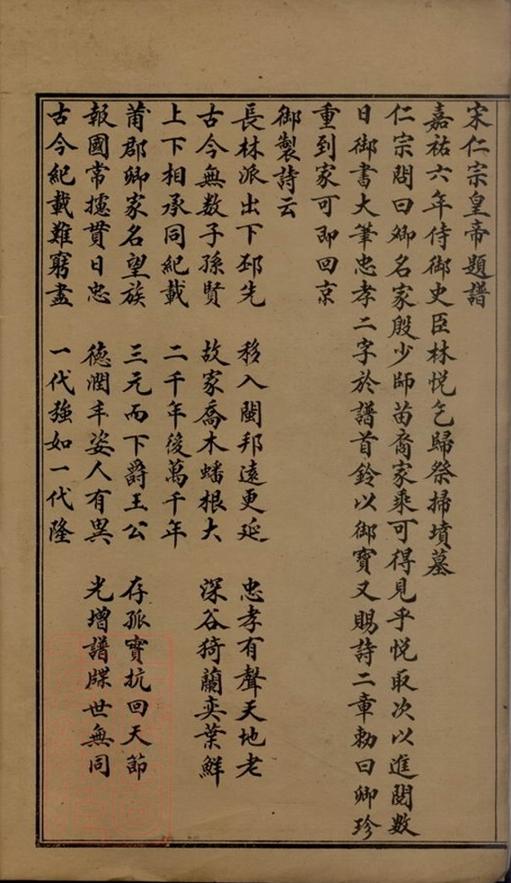 宋仁宗皇帝題譜
嘉祐六年侍御史臣林悅乞歸祭掃墳墓
仁宗問曰卿名家殷少師苗裔家乘可得見乎悅取次以進閱數
日御書大筆忠孝二字於譜首鈐以御寶又賜詩二章勅曰卿珍
重到家可即回京
御製詩云
長林派出下邳先　移入閩邦遠更延　忠孝有聲天地老
古今無数子孫賢　故家喬木蟠根大　深谷猗蘭奕葉鮮
上下相承同紀載　二千年後萬千年
莆郡卿家名望族　三元而下爵王公　存孤實抗回天節
報國常攄貫日忠　德潤丰姿人有異　光增譜牒世無同
古今紀載難窮盡　一代強如一代隆